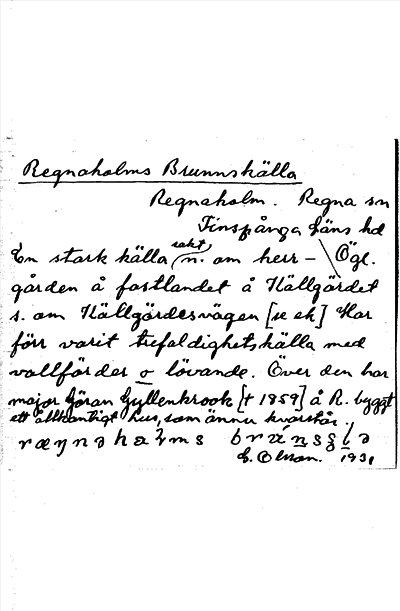 Regnaholms Brunnskälla
Regnaholm. Regna sn
Finspånga läns hd
En stark källa rakt n. om herr- Ögl.
gården å fastlandet å Källgärdet
s. om Källgärdesvägen [se ek] Har
förr varit trefaldighetskälla med
vallfärder o lövande. Över den har
major Göran Gyllenkrook [† 1859] å R. byggt
ett åttkantigt hus, som ännu kvarstår.
E. Olsson. 1931